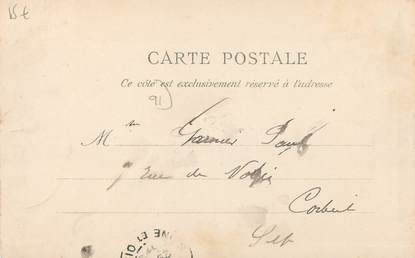 15 €
CARTE POSTALE
Ce côté est exclusivement réservé à l'adresse
91
M Garnier Paul
7 rue de
Corbeil
S et
NE ET OI